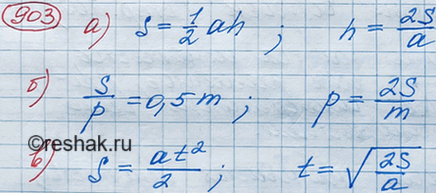 903 а) S = 1/2 ah ; h = 2S/a
б) S/p = 0,5 m ; p = 2S/m
©reshak.ru
в) S = at²/2 ; t = √(2S/a)